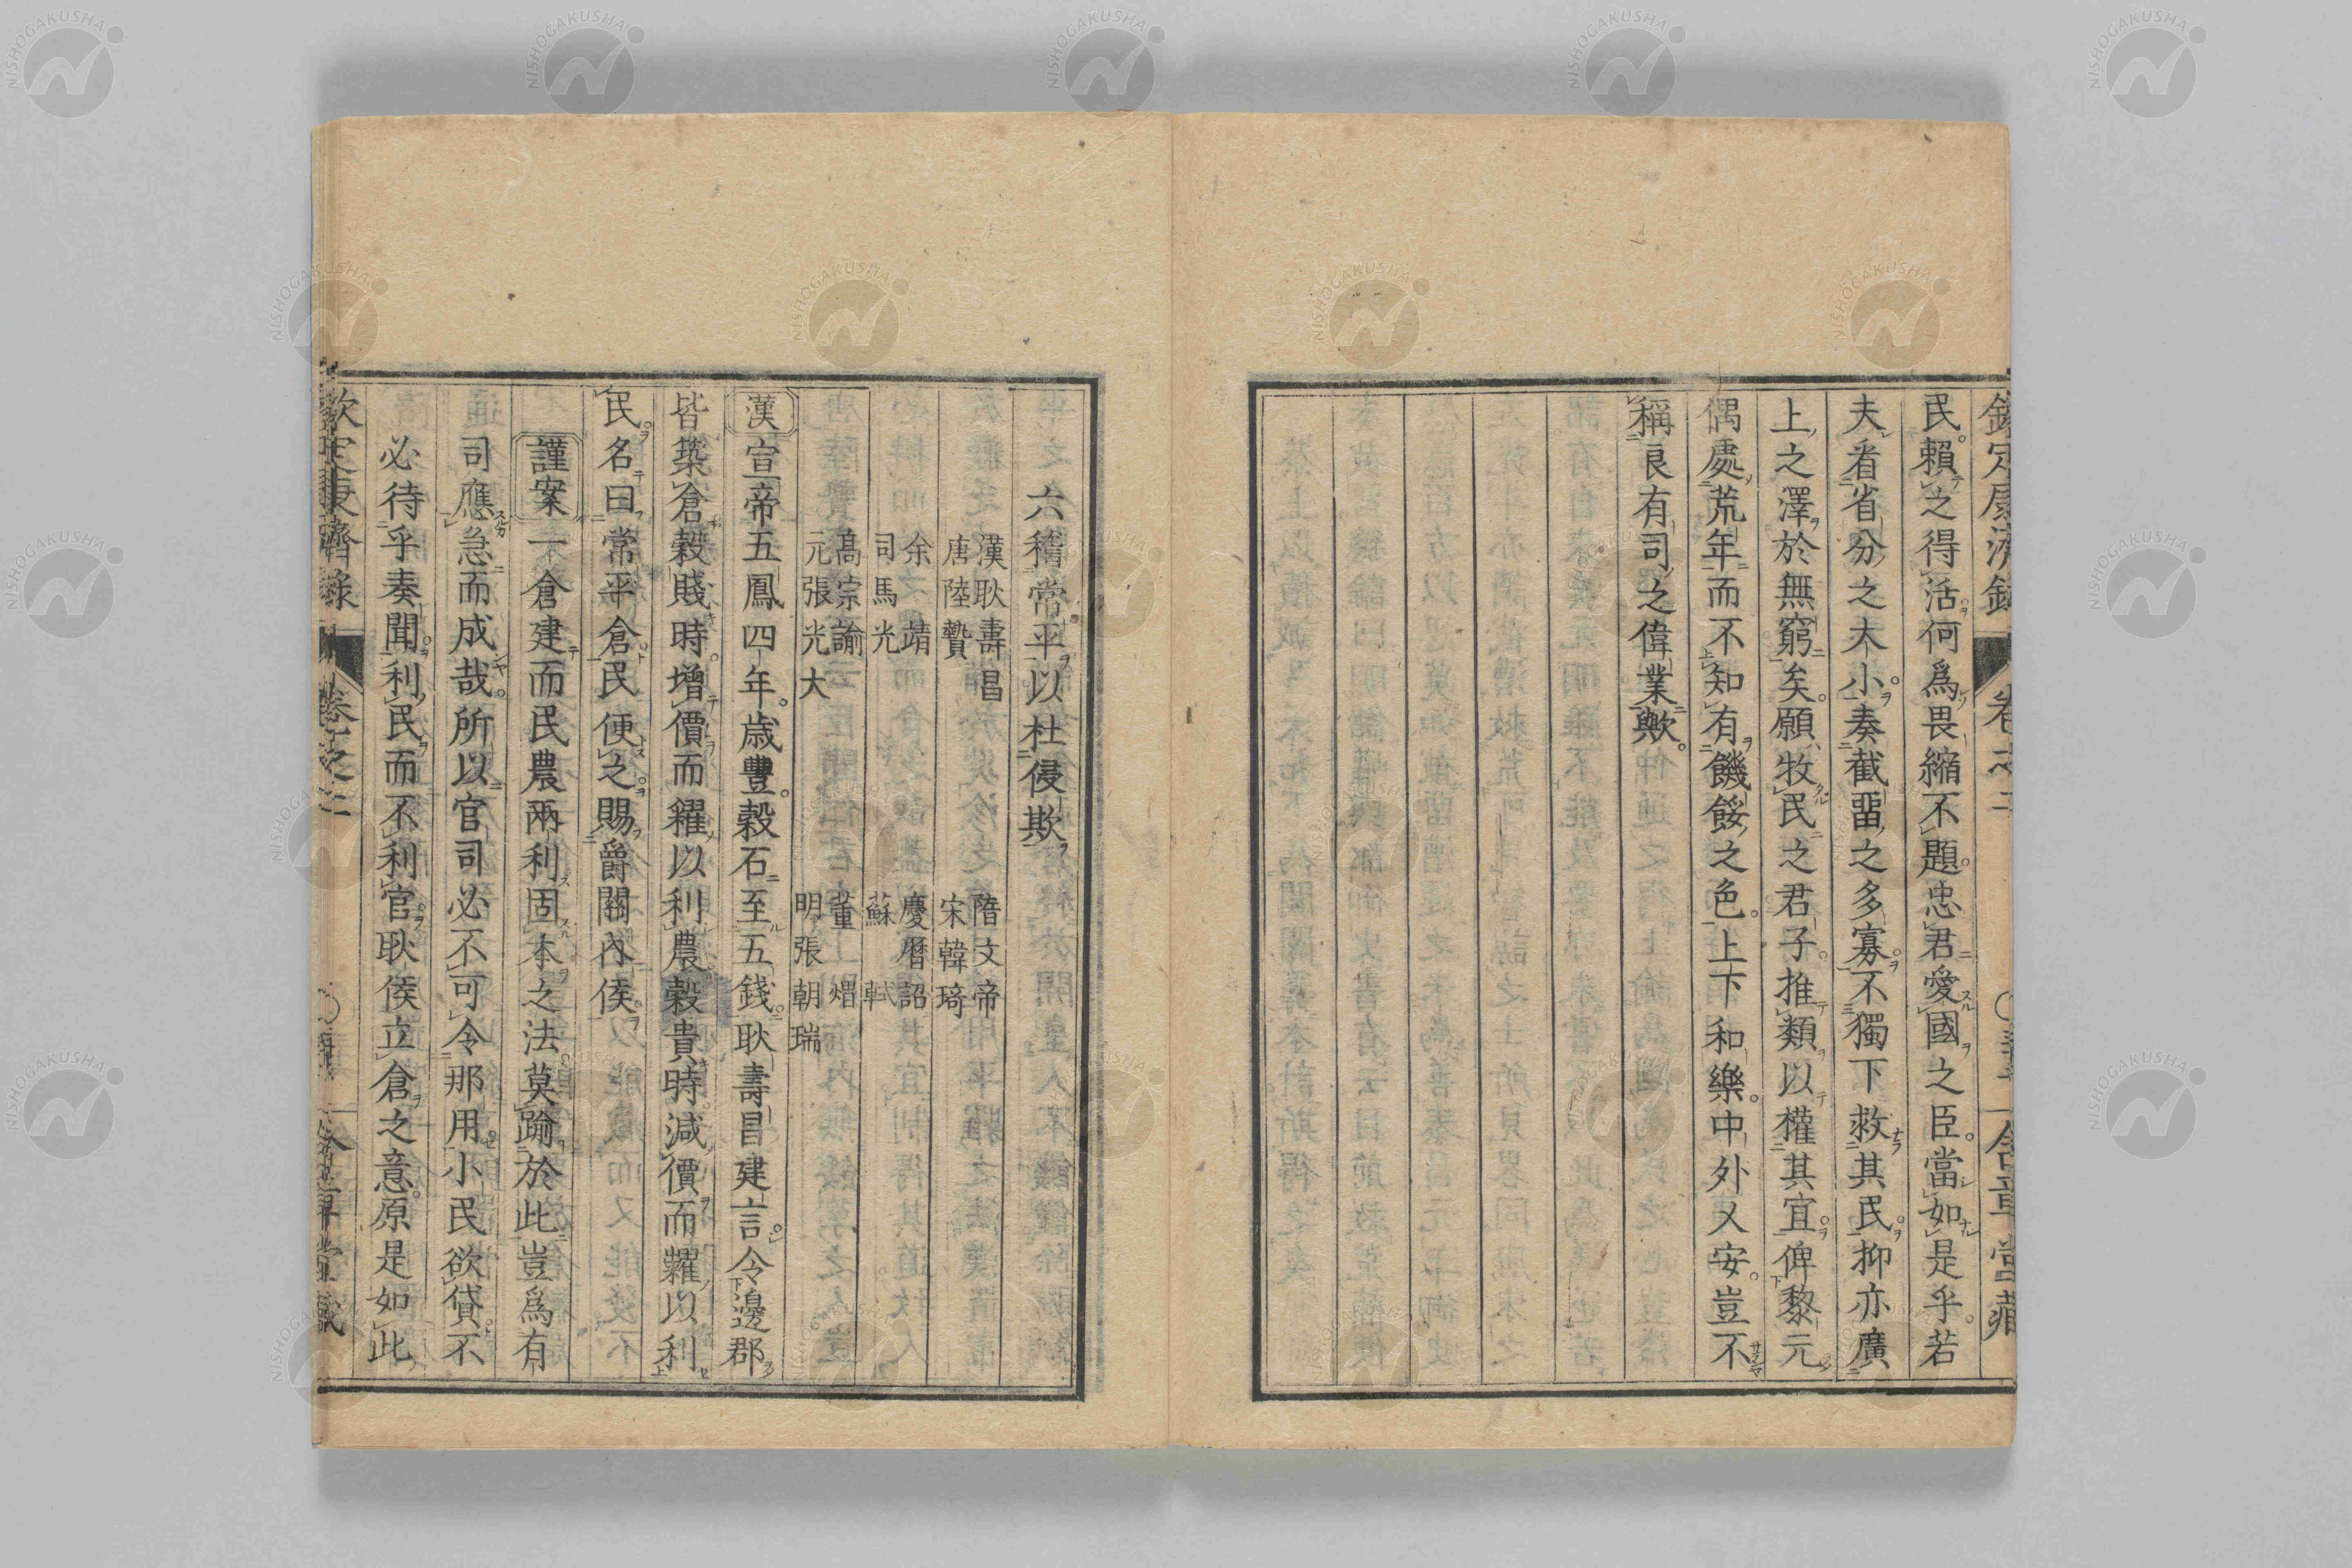 民。賴之得活。何爲畏縮不題。忠君愛國之臣。當如是乎。若
夫看省分之大小。奏截畱之多寡。不獨下救其民。抑亦廣
上之澤於無窮矣。願牧民之君子。推類以權其宜。俾黎元
偶處荒年。而不知有饑餒之色。上下和樂。中外乂安。豈不
稱良有司之偉業歟。
六稽常平以杜侵欺
漢耿壽昌 隋文帝
唐陸贄 宋韓琦
余靖 慶曆詔
司馬光 蘇軾
高宗諭 董煟
元張光大 明張朝瑞
漢宣帝五鳳四年。歲豐。穀石至五錢。耿壽昌建言。令邊郡
皆築倉。穀賤時。增價而糴以利農。穀貴時。減價而糶以利
民。名曰常平倉。民便之。賜爵關內侯。
謹案一倉建而民農兩利。固本之法。莫踰於此。豈爲有
司應急而成哉。所以官司必不可令那用。小民欲貸。不
必待乎奏聞。利民而不利官。耿侯立倉之意。原是如此
欽定康濟錄 卷之二
NISHOGAKUSHA